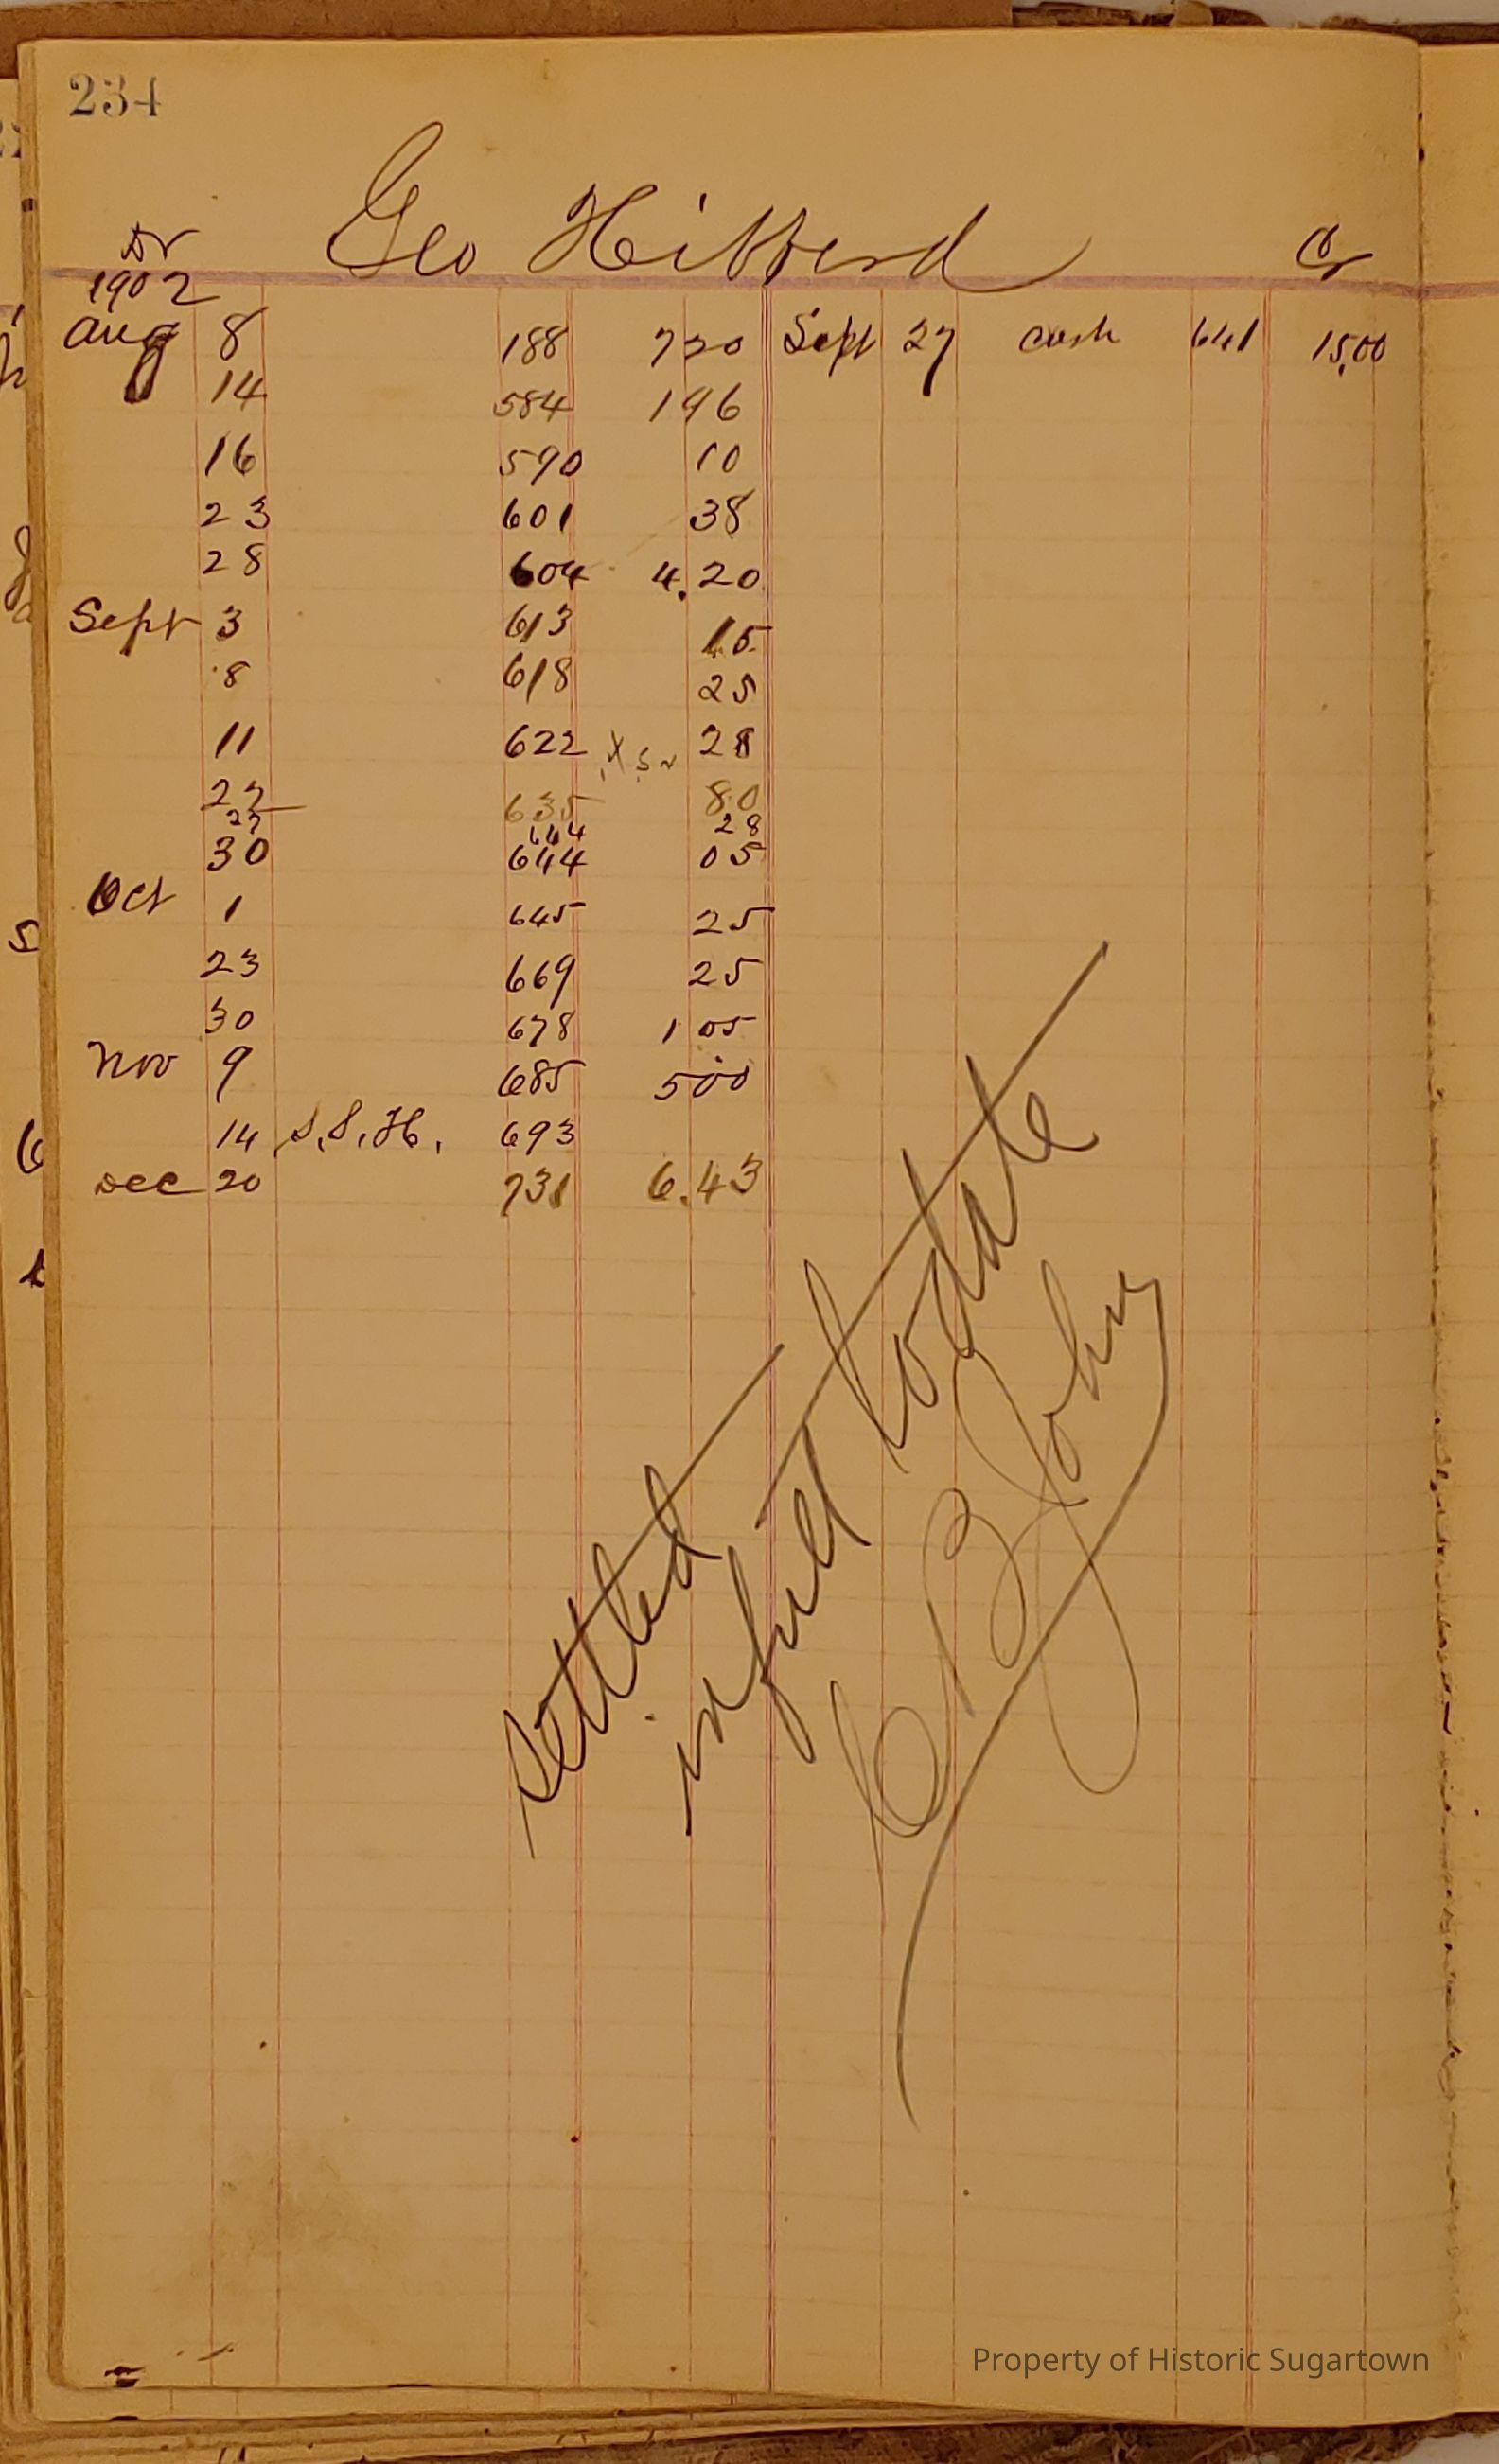 234
Geo Hibberd
Dr Cr
1902
Aug 8 188 7 20 Sept 27 cash 641 15,00
14 584 1 96
16 590 10
23 601 38
28 604 4.20
Sept 3 613 15
8 618 25
11 622 28
27 635 80
27 644 28
30 644 05
Oct 1 645 25
23 669 25
30 678 1 05
Nov 9 685 5 00
14 S.S.H. 693
Dec 20 731 6.43
settled
in full to date
C B
Property of Historic Sugartown